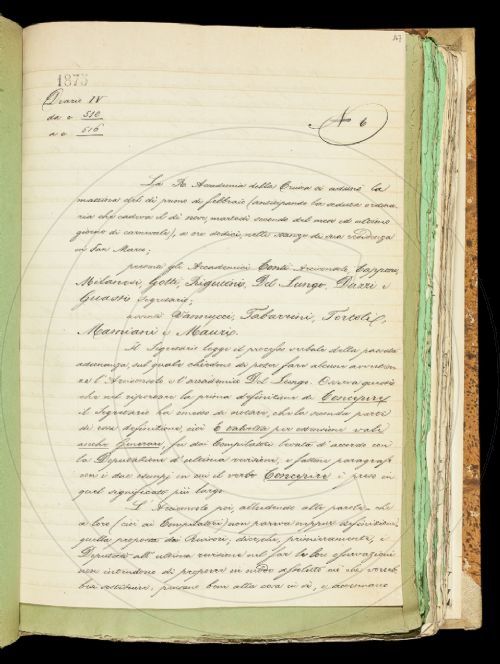 147
1873
Diario IV
da c. 510
a c. 516
N 6
La R. Accademia della Crusca si adunò la
mattina del dì primo di febbraio (anticipando la adunanza ordina
ria che cadeva il dì , martedì secondo del mese ed ultimo
giorno di carnevale), a ore dodici, nelle stanze di sua residenza
in San Marco;
presenti gli Accademici Conti Arciconsolo, Capponi,
Milanesi, Gotti, Rigutini, Del Lungo, Dazzi e
Guasti Segretario;
assenti Vannucci, Tabarrini, Tortoli,
Mamiani e Mauri.
Il Segretario legge il processo verbale della passata
adunanza, sul quale chiedono di poter fare alcune avverten
ze l'Arciconsolo e l'accademico Del Lungo. Osserva questi
che nel riportare la prima definizione di Concepire
il Segretario ha omesso di notare, che la seconda parte
di essa definizione, cioè E talvolta per estensione vale
anche Generare, fu dai Compilatori levata d'accordo con
la Deputazione d'ultima revisione, e fattone paragrafo
con i due esempi in cui il verbo Concepire è preso in
quel significato più largo.
L'Arciconsolo poi, alludendo alle parole che
a loro (cioè ai Compilatori) non pareva neppur definizione
quella proposta da' Revisori, dice che, primieramente, i
Deputati all'ultima revisione nel far le loro osservazioni
non intendono di proporre in modo assoluto ciò che vorreb
bero sostituire, pensare bene alla cosa in sè, e accennare